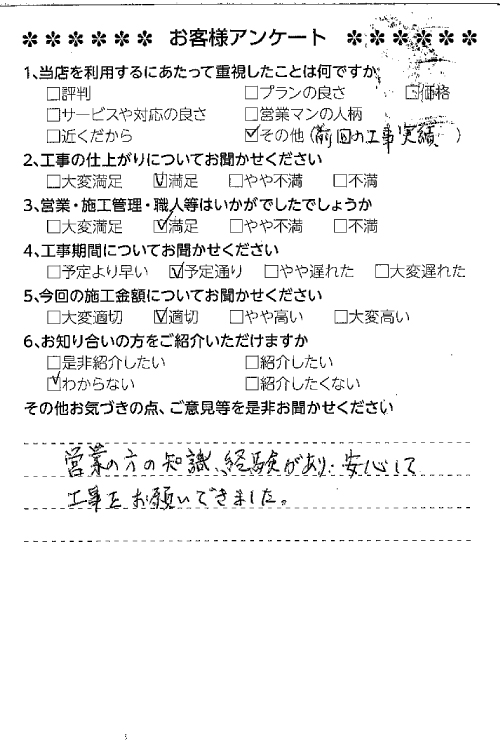 ✽ ✽ ✽ ✽ ✽ ✽ お客様アンケート ✽ ✽ ✽ ✽ ✽ ✽
1、当店を利用するにあたって重視したことは何ですか
□評判 □プランの良さ □価格
□サービスや対応の良さ □営業マンの人柄
□近くだから ☑その他(前回の工事実績 )
2、工事の仕上がりについてお聞かせください
□大変満足 ☑満足 □やや不満 □不満
3、営業・施工管理・職人等はいかがでしたでしょうか
□大変満足 ☑満足 □やや不満 □不満
4、工事期間についてお聞かせください
□予定より早い ☑予定通り □やや遅れた □大変遅れた
5、今回の施工金額についてお聞かせください
□大変適切 ☑適切 □やや高い □大変高い
6、お知り合いの方をご紹介いただけますか
□是非紹介したい □紹介したい
☑わからない □紹介したくない
その他お気づきの点、ご意見等を是非お聞かせください
営業の方の知識、経験があり、安心して
工事をお願いできました。